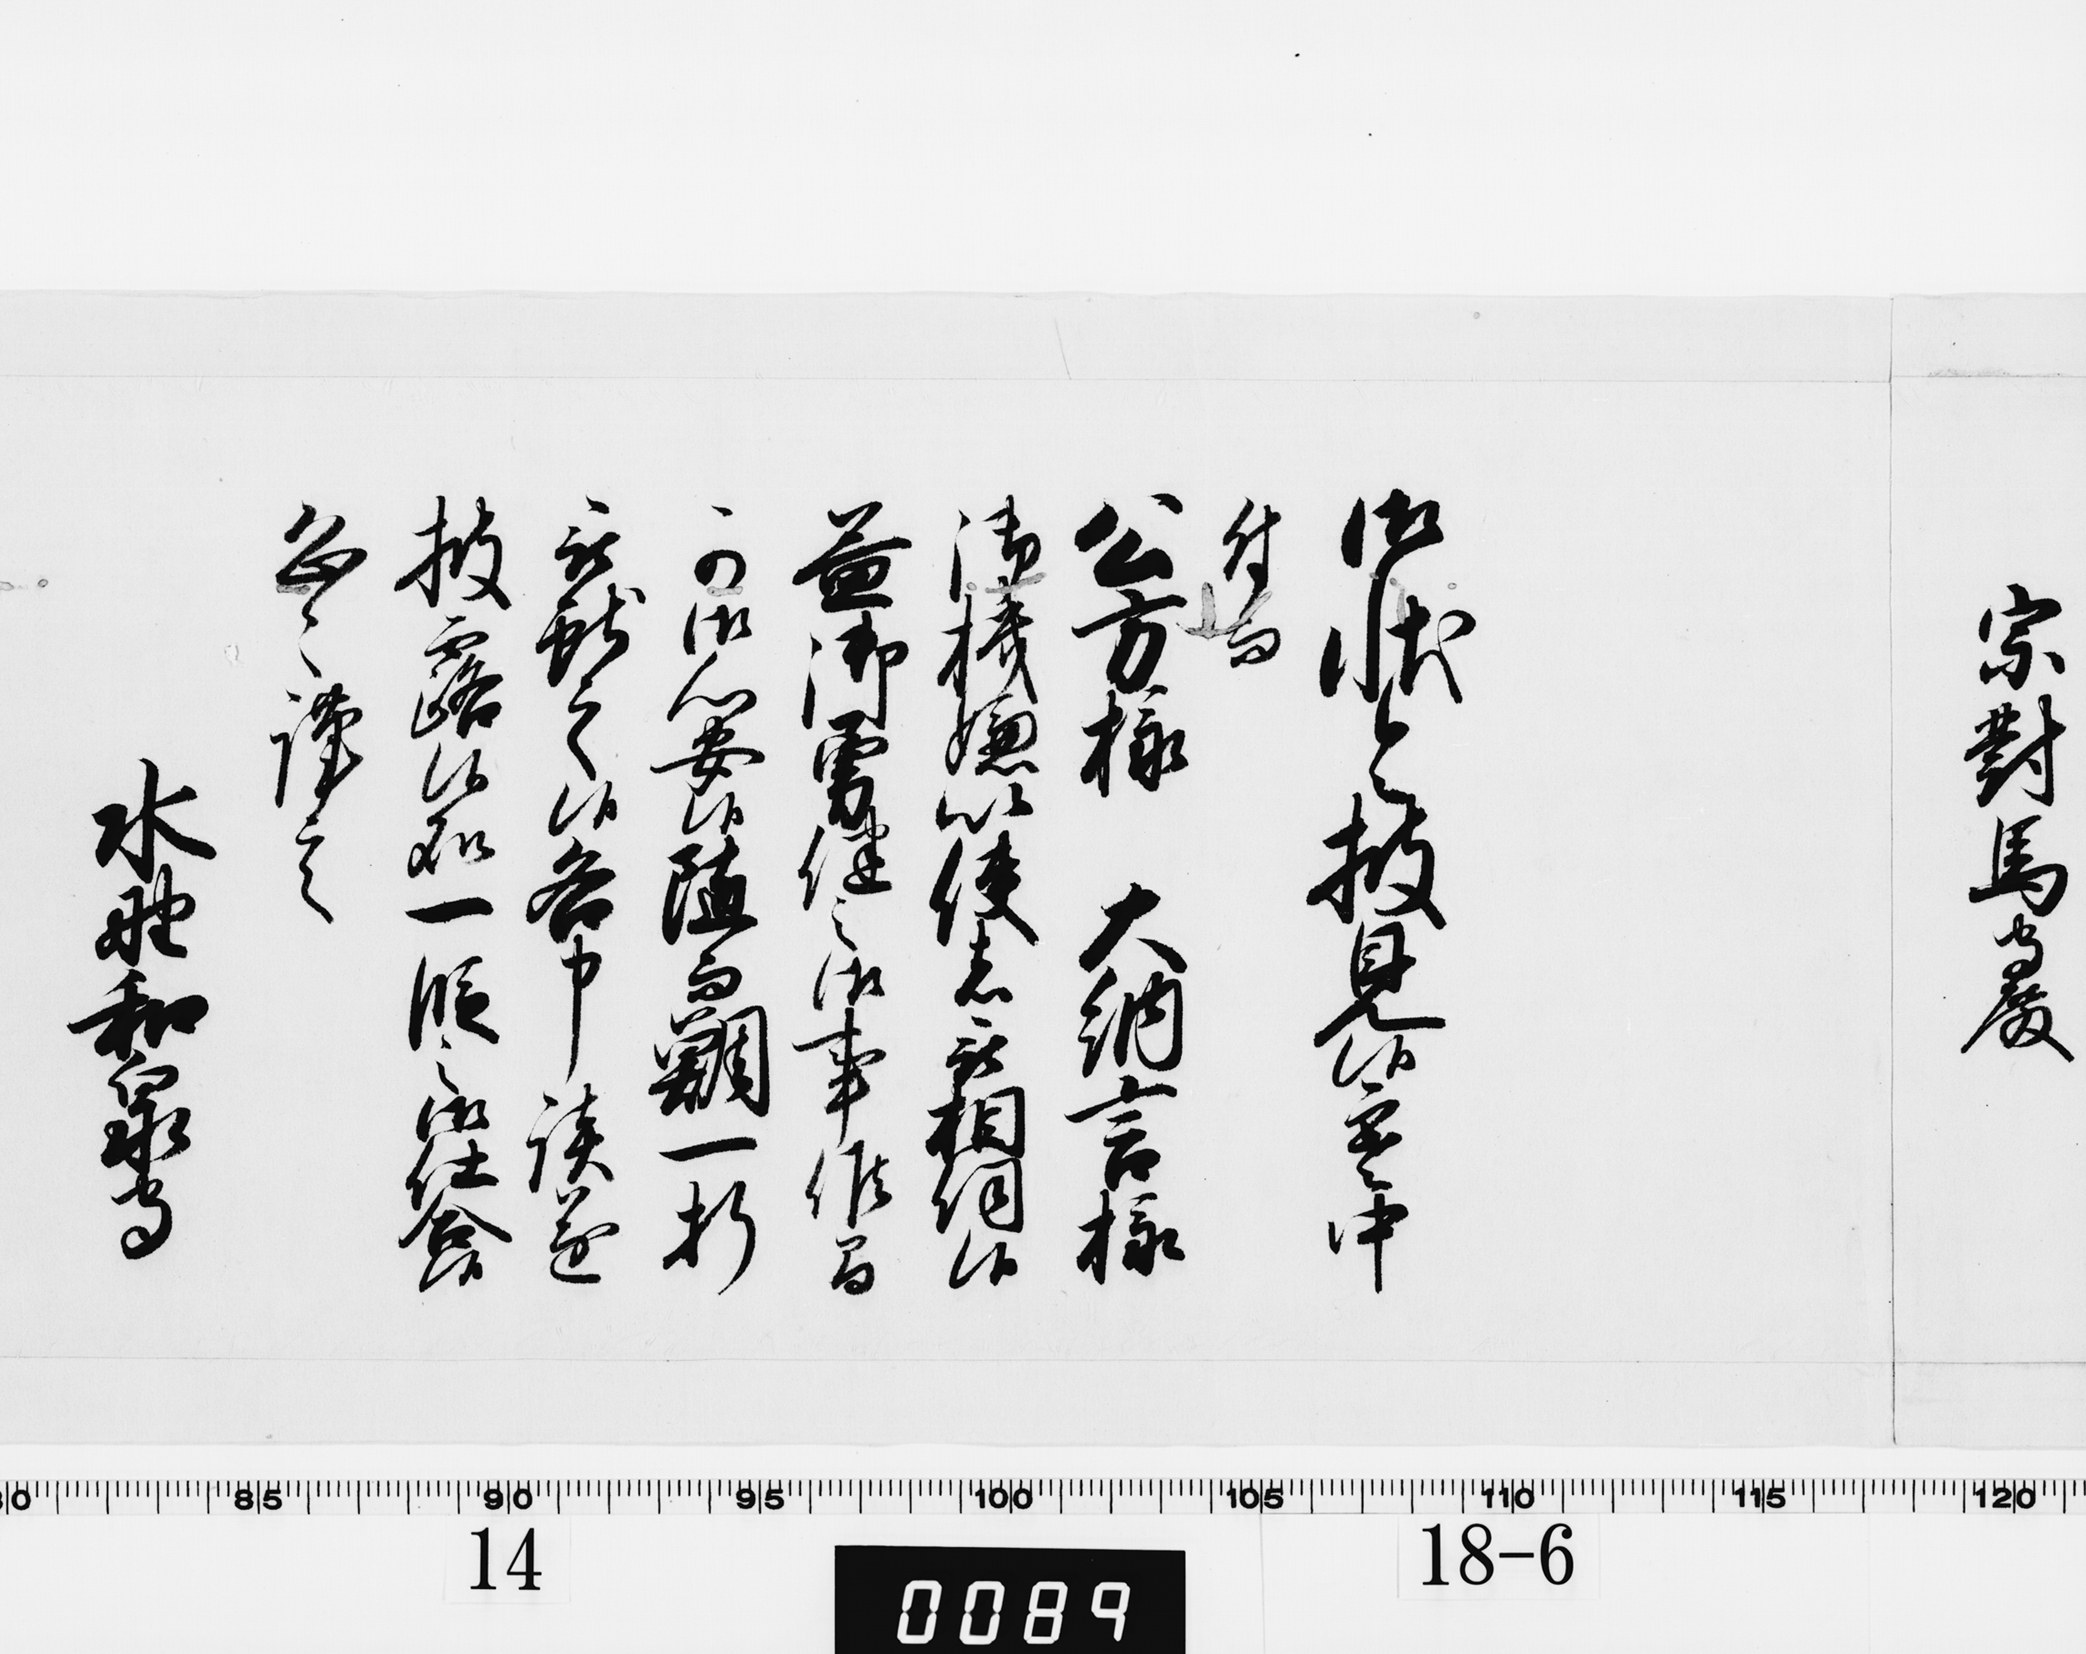 宗對馬守殿
御状令披見候寒中
付而
公方様 大納言様
御機嫌以使者被相伺候
益御勇健之御事候間
可御心安候随而鯛一折
被献之候各申談遂
披露候処一段之御仕合候
恐々謹言
水野和泉守
80 85 90 95 100 105 110 115 120
14 18-6
0089